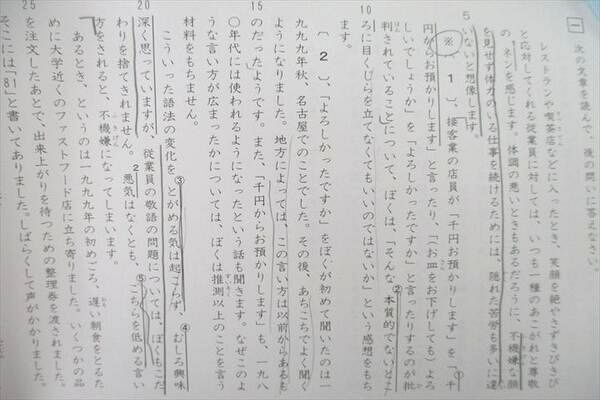 一 次の文章を読んで、後の問いに答えなさい。
レストランや喫茶店などに入ったとき、笑顔を絶やさずきびきび
と応対してくれる従業員に対しては、いつも一種のあこがれと尊敬
の ネンを感じます。体調の悪いときもあるだろうに、不機嫌な顔
を見せず体力のいる仕事を続けるためには、隠れた苦労も多いに違
5 いないと想像します。
※〔 1 〕、接客業の店員が「千円お預かりします」を「千
円からお預かりします」と言ったり、「お皿をお下げしてもよろ
しいでしょうか」を「よろしかったですか」と言ったりするのが批
判されていることについて、ぼくは、「そんな②本質的でないとこ
10 ろに目くじらを立てなくてもいいのではないか」という感想をもち
ます。
〔 2 〕、「よろしかったですか」をぼくが初めて聞いたのは一
九九九年秋、名古屋でのことでした。その後、あちこちでよく聞く
ようになりました。地方によっては、この言い方は以前からあるも
15 のだったようです。また、「千円からお預かりします」も、一九八
〇年代には使われるようになったという話も聞きます。なぜこのよ
うな言い方が広まったかについては、ぼくは推測以上のことを言う
材料をもちません。
こういった語法の変化を③とがめる気は起こらず、④むしろ興味
20 深く思っていますが、従業員の敬語の問題については、ぼくもこだ
わりを捨てきれません。2悪気はなくとも、⑤こちらを低める言い
方をされると、不機嫌になってしまいます。
あるとき、というのは一九九九年の初めごろ、遅い朝食をとるた
めに大学近くのファストフード店に立ち寄りました。いくつかの品
25 を注文したあとで、出来上がりを待つための整理券を渡されました。
そこには「81」と書いてありました。しばらくして声がかかりました。